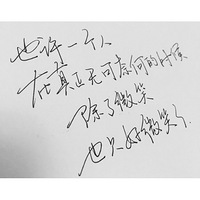 也许一个人
在真正无可奈何的时候
除了微笑
也只好微笑了